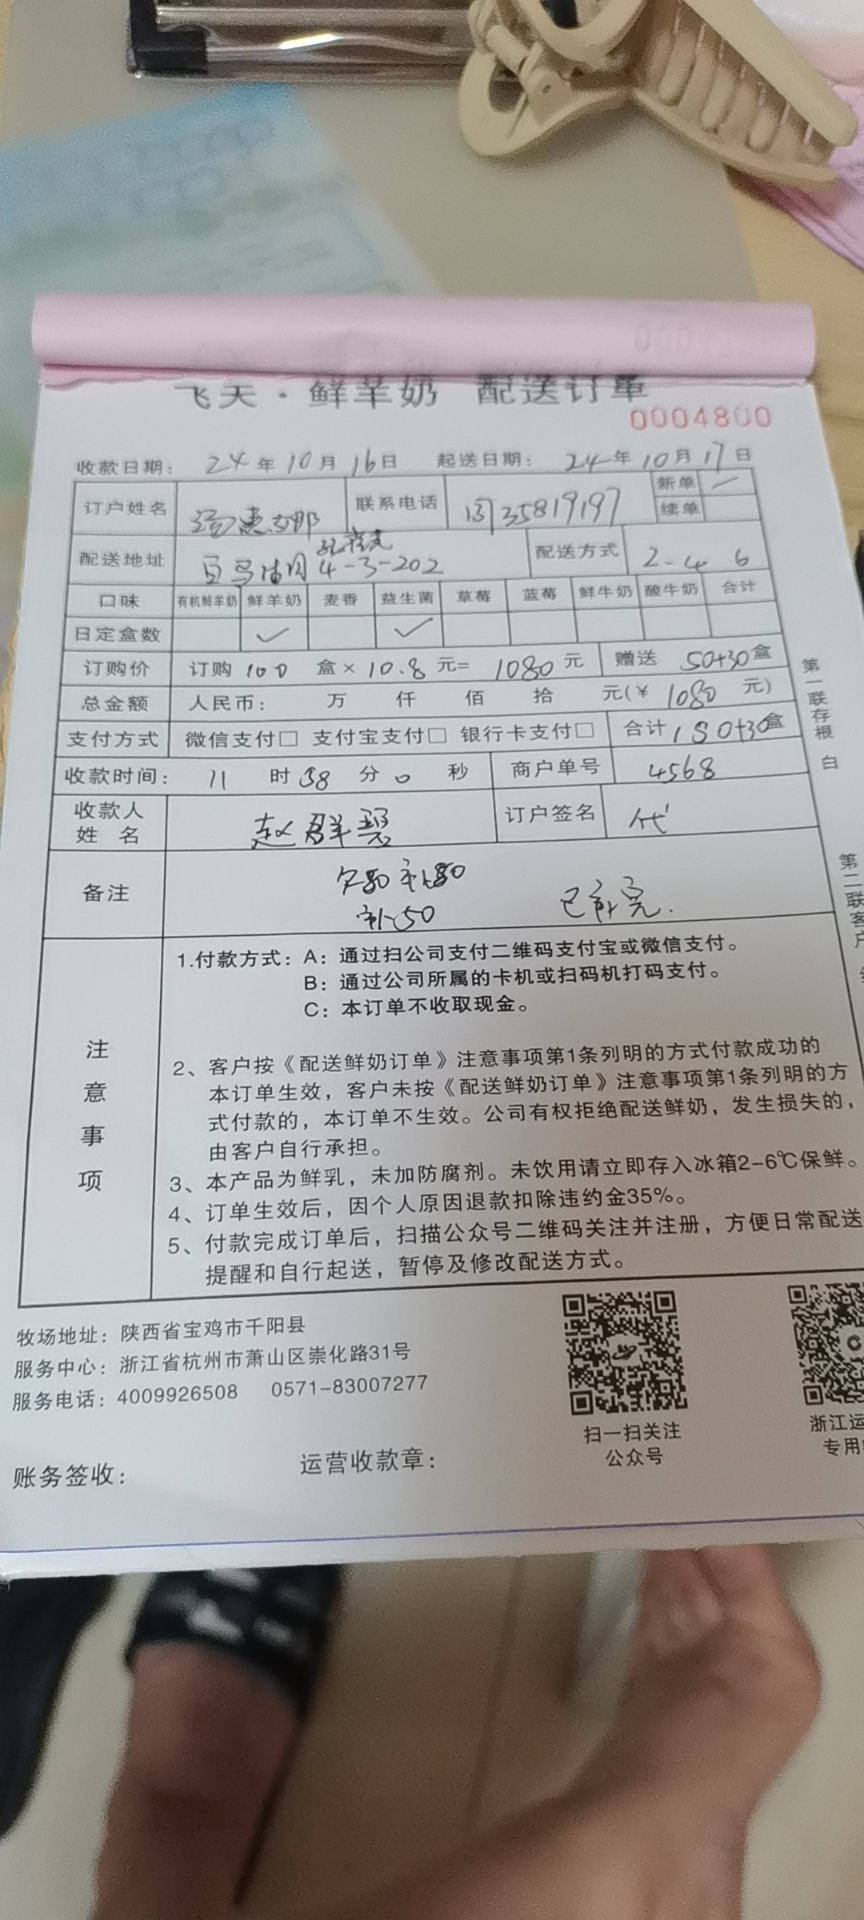 飞天·鲜羊奶 配送订单
0004800
收款日期: 24年10月16日 起送日期: 24年10月17日
订户姓名 联系电话 13735819197 新单
续单
配送地址 4-3-202 配送方式 2-4 6
口味 有机鲜羊奶 鲜羊奶 麦香 益生菌 草莓 蓝莓 鲜牛奶 酸牛奶 合计
日定盒数 ✓ ✓
订购价 订购 100 盒×10.8元=1080元 赠送 50+30盒
总金额 人民币: 万 仟 佰 拾 元(¥ 1080 元)
支付方式 微信支付□ 支付宝支付□ 银行卡支付□ 合计 150+30盒
收款时间: 11时38分0秒 商户单号 4568
收款人姓名 赵群碧 订户签名 代
备注 欠80 补80
补50 已补完.
注意事项
1.付款方式: A: 通过扫公司支付二维码支付宝或微信支付。
B: 通过公司所属的卡机或扫码机打码支付。
C: 本订单不收取现金。
2、客户按《配送鲜奶订单》注意事项第1条列明的方式付款成功的
本订单生效, 客户未按《配送鲜奶订单》注意事项第1条列明的方
式付款的, 本订单不生效。公司有权拒绝配送鲜奶, 发生损失的,
由客户自行承担。
3、本产品为鲜乳, 未加防腐剂。未饮用请立即存入冰箱2-6℃保鲜。
4、订单生效后, 因个人原因退款扣除违约金35%。
5、付款完成订单后, 扫描公众号二维码关注并注册, 方便日常配送
提醒和自行起送, 暂停及修改配送方式。
第一联存根 白
第二联客户
牧场地址: 陕西省宝鸡市千阳县
服务中心: 浙江省杭州市萧山区崇化路31号
服务电话: 4009926508 0571-83007277
扫一扫关注
公众号
浙江运
专用
账务签收: 运营收款章: